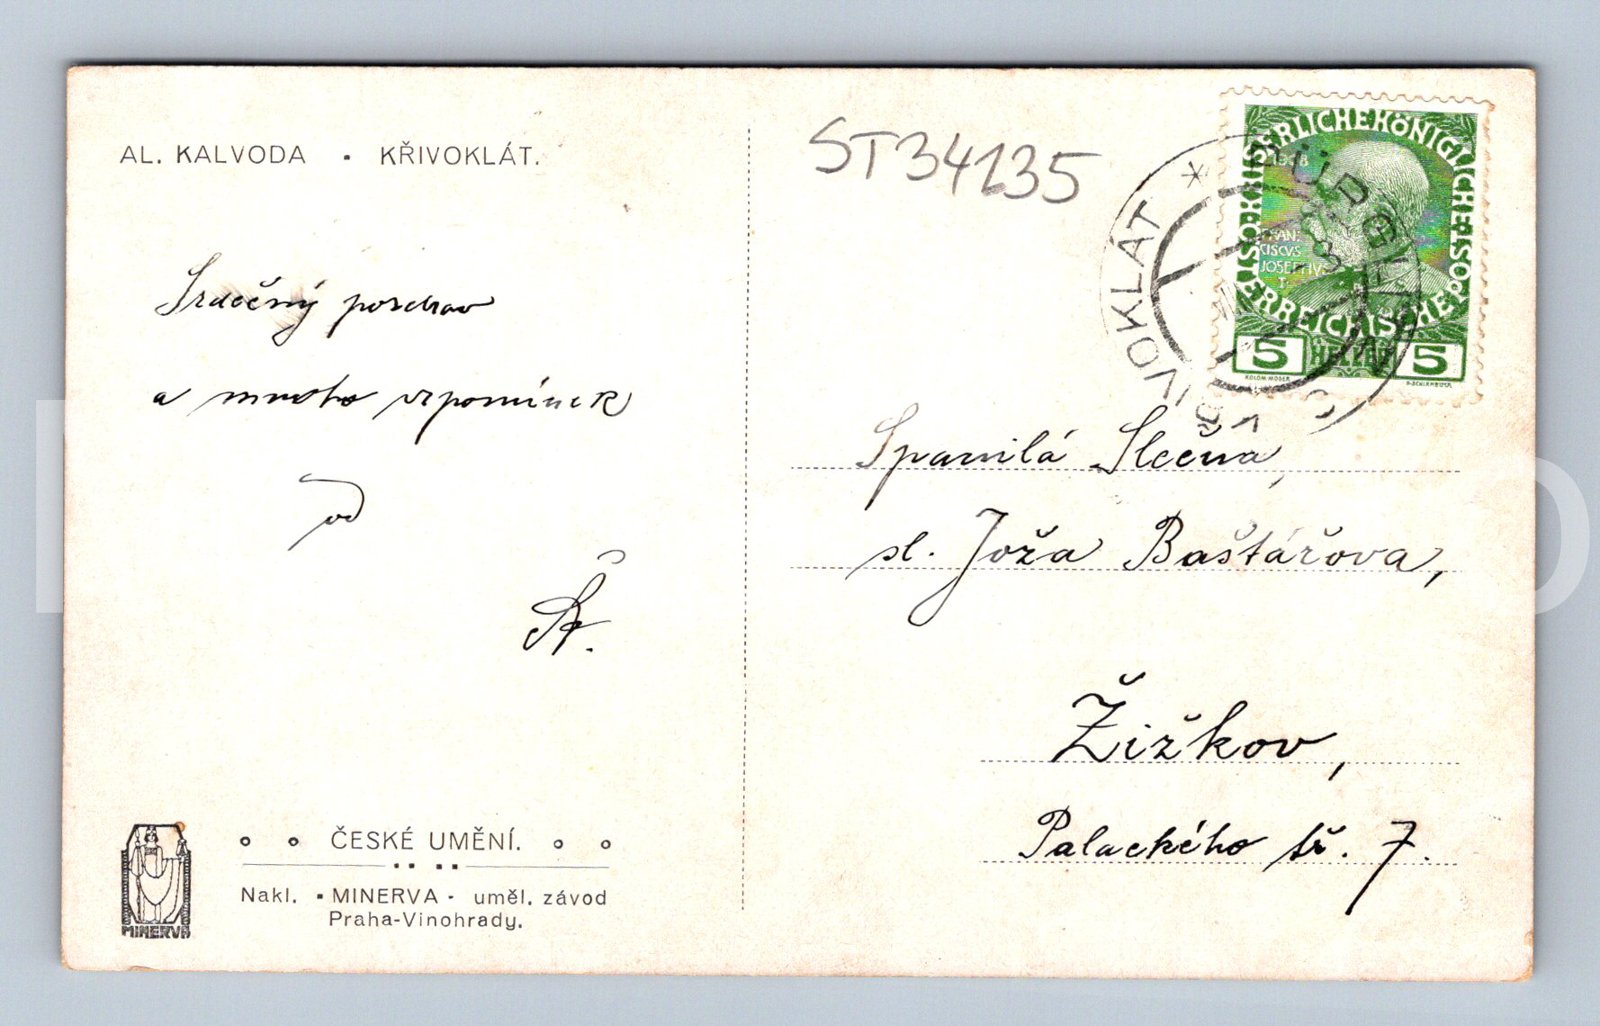 AL. KALVODA • KŘIVOKLÁT.
ST34135
Srdečný pozdrav
a mnoho vzpomínek
od
Spanilá Slečna,
sl. Joža Baštářova,
Žižkov,
Palackého tř. 7.
ČESKÉ UMĚNÍ.
Nakl. • MINERVA • uměl. závod
Praha-Vinohrady.
MINERVA
KAISERLICHE KÖNIGLICHE
ÖSTERREICHISCHE POST
1908
FRAN
CISCVS
JOSEPHVS
I
5 HELLER 5
KOLOM. MOSER
F. SCHIRNBÖCK
PÜRGLITZ
KŘIVOKLÁT